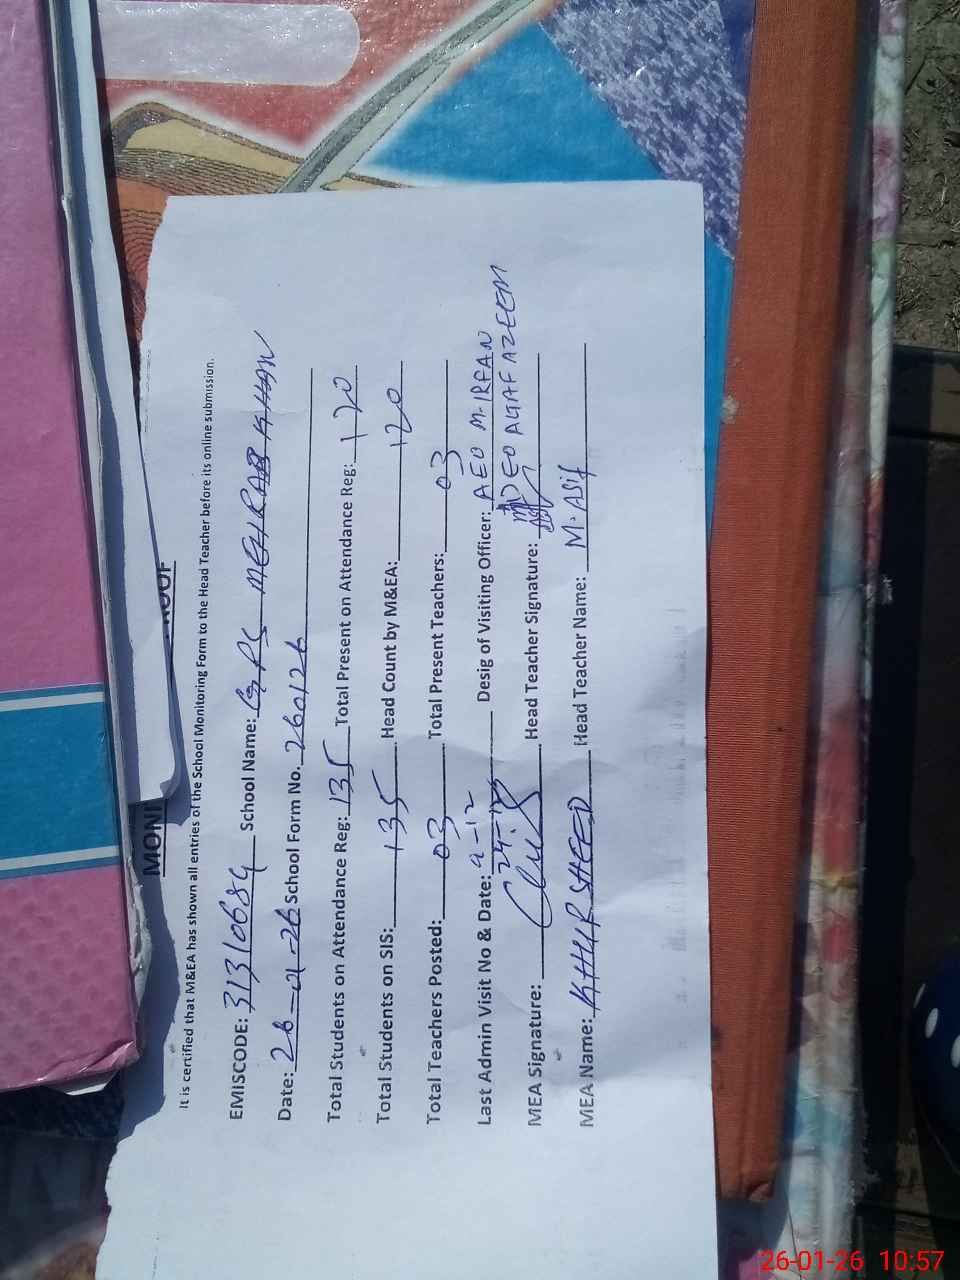 MONI ROOF
It is certified that M&EA has shown all entries of the School Monitoring Form to the Head Teacher before its online submission.
EMISCODE: 31310684 School Name: GPS MEHRAB KHAN
Date: 26-01-26 School Form No. 260126
Total Students on Attendance Reg: 135 Total Present on Attendance Reg: 120
Total Students on SIS: 135 Head Count by M&EA: 120
Total Teachers Posted: 03 Total Present Teachers: 03
Last Admin Visit No & Date: Desig of Visiting Officer: AEO M. IRFAN
DEO AZEEM
MEA Signature: Head Teacher Signature:
MEA Name: KHURSHEED Head Teacher Name: M. Asif
26-01-26 10:57